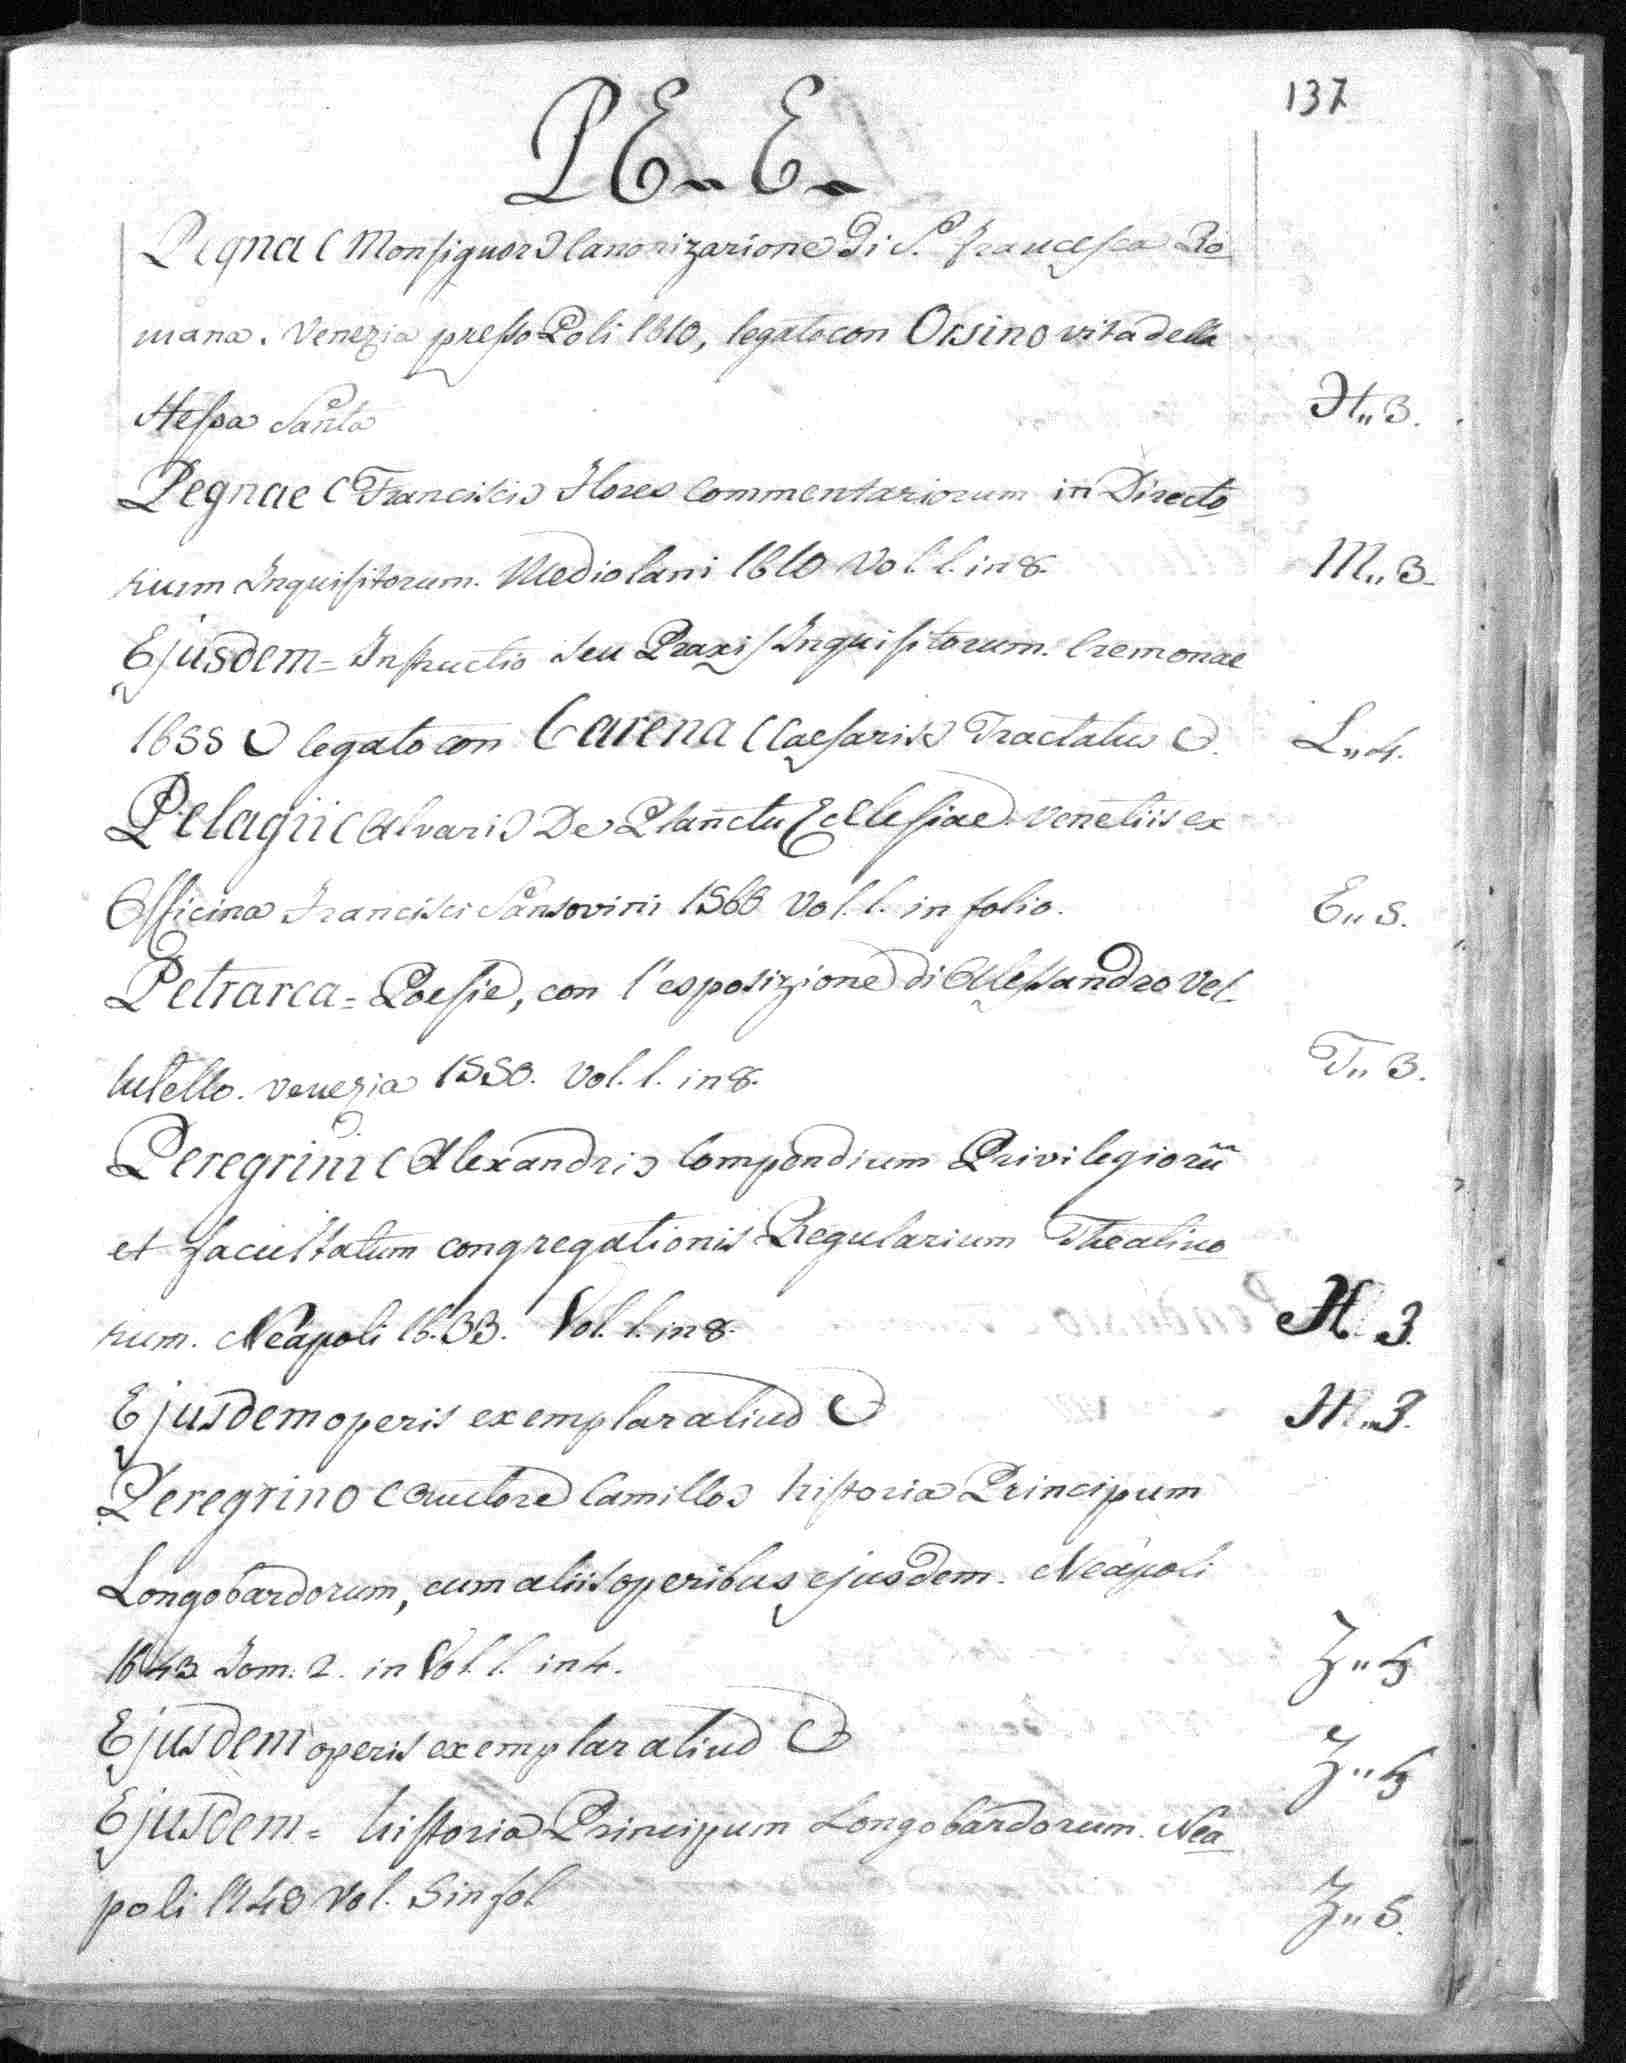 137
PE.. E..
Pegna (Monsignor) Canonizazione di S.ª Francesca Ro
mana. Venezia presso Poli 1610, legato con Orsino vita della
stessa Santa H.. 3.
Pegnae (Francisci) Flores Commentariorum in Directo
rium Inquisitorum. Mediolani 1610 Vol. 1. in 8. M.. 3.
Ejusdem = Instructio seu Praxis Inquisitorum. Cremonae
1655 legato con Carena (Caesaris) Tractatus L.. 4.
Pelagii (Alvari) De Planctu Ecclesiae. Venetiis ex
Officina Francisci Sansovini 1560 Vol. 1. in folio. E.. 5.
Petrarca = Poesie, con l'esposizione di Alessandro Vel-
lutello. Venezia 1550. Vol. 1. in 8. T.. 3.
Peregrini (Alexandri) Compendium Privilegiorũ
et facultatum congregationis Regularium Theatino
rum. Neapoli 16.33. Vol. 1. in 8. H. 3.
Ejusdem operis exemplar aliud H.. 3.
Peregrino (Auctore Camillo) historia Principum
Longobardorum, cum aliis operibus ejusdem. Neapoli
1643 Tom: 2. in Vol. 1. in 4. Z.. 5
Ejusdem operis exemplar aliud Z.. 5
Ejusdem = historia Principum Longobardorum. Nea
poli 1749 Vol. 5 in fol Z.. 5.